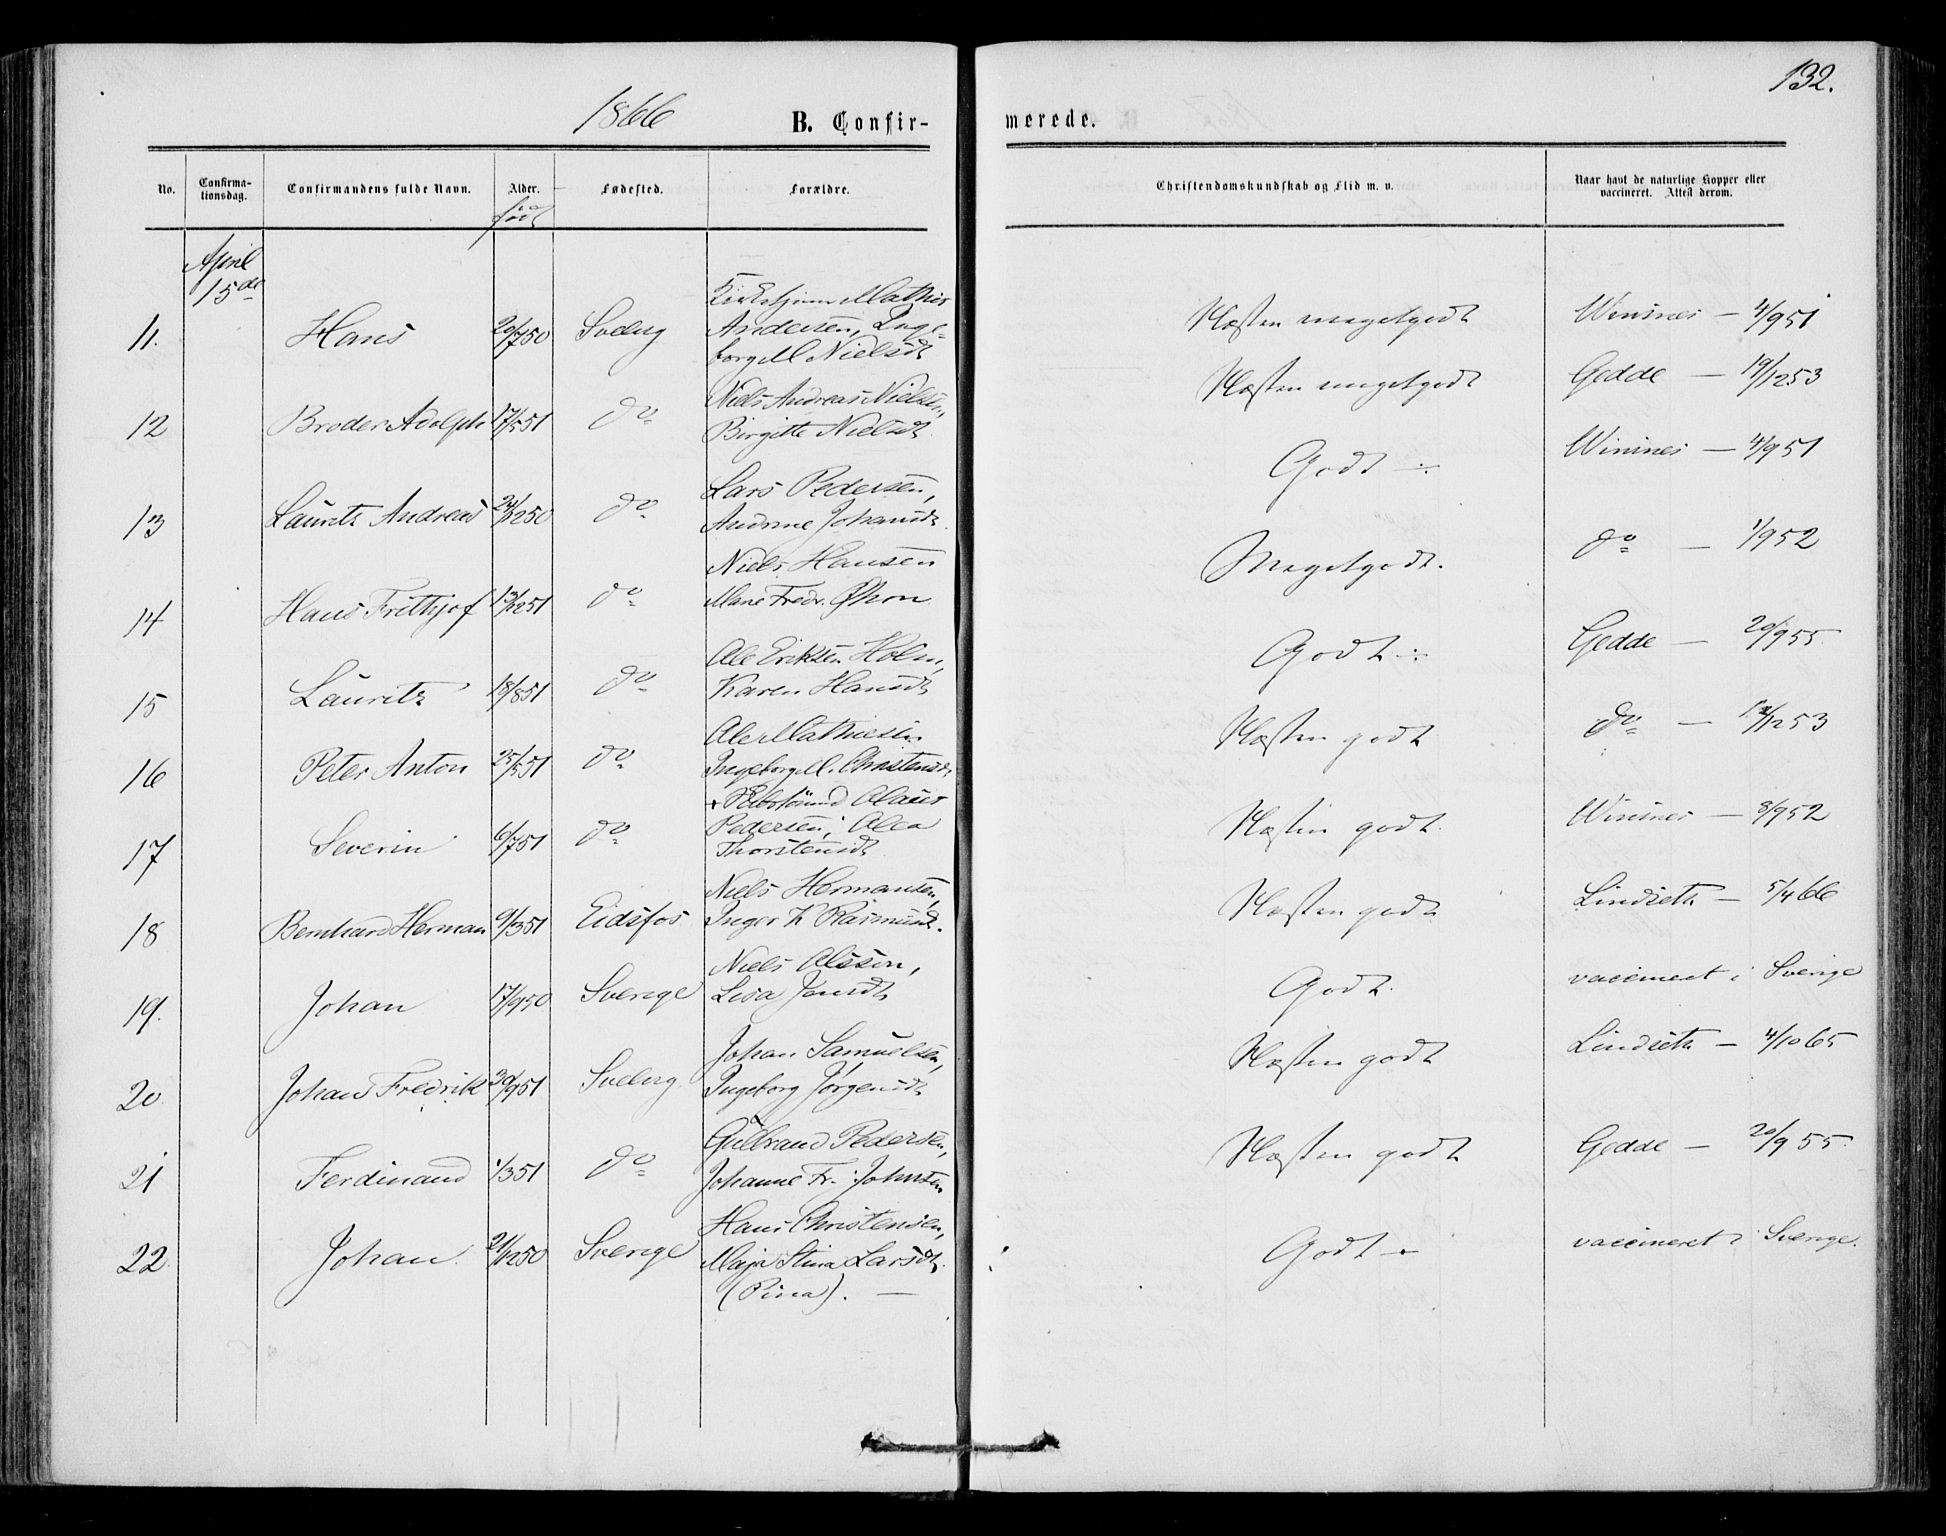 132.
1866
B. Confir-
merede.
No.
Confirma-
tionsdag.
Confirmandens fulde Navn.
Alder.
født
Fødested.
Forældre.
Christendomskundskab og Flid m. v.
Naar havt de naturlige Kopper eller
vaccineret. Attest derom.
April
15de
11. Hans 20/7 50 Svelvig
Mathis
Andersen, Inge-
borg M Nielsdt
Næsten megetgodt
Winsnes — 4/9 51
12 Broder Adolph 17/5 51 do
Niels Andreas Nielsen,
Birgitte Nielsdt.
Næsten megetgodt
Gedde — 19/12 53
13 Lauritz Andreas 24/12 50 do
Lars Pedersen,
Andrine Johansdt.
Godt ÷
Winsnes — 4/9 51
14 Hans Frithjof 13/12 51 do
Niels Hansen
Marie Fredr.
Megetgodt.
do — 1/9 52
15 Lauritz 18/8 51 do
Ole Eriksen Holm,
Karen Hansdt
Godt ÷
Gedde — 20/9 55
16 Peter Anton 25/5 51 do
Ole Mathiesen
Ingeborg M. Christensdt
Næsten godt
do — 12/12 53
17 Severin 6/7 51 do
Olaus
Pedersen, Olea
Thorstensdt
Næsten godt.
Winsnes — 8/9 52
18 Bernhard Herman 9/3 51 Eidsfos
Niels Hermansen,
Inger K Rasmusdt.
Næsten godt
Lindseth — 5/4 66
19. Johan 17/9 50 Sverige
Niels Olsson,
Lisa Jansdt
Godt.
vaccineret i Sverige
20 Johan Fredrik 30/9 51 Svelvig
Johan Samuelsen,
Ingeborg Jørgensdt
Næsten godt
Lindseth — 4/10 65
21 Ferdinand 1/3 51 do
Gulbrand Pedersen,
Johanne Fr. Johnsen
Næsten godt
Gedde — 20/9 55
22 Johan 21/12 50 Sverige
Hans Christensen,
Maja Stina Larsdt.
(Pina). —
Godt
vaccineret i Sverige.